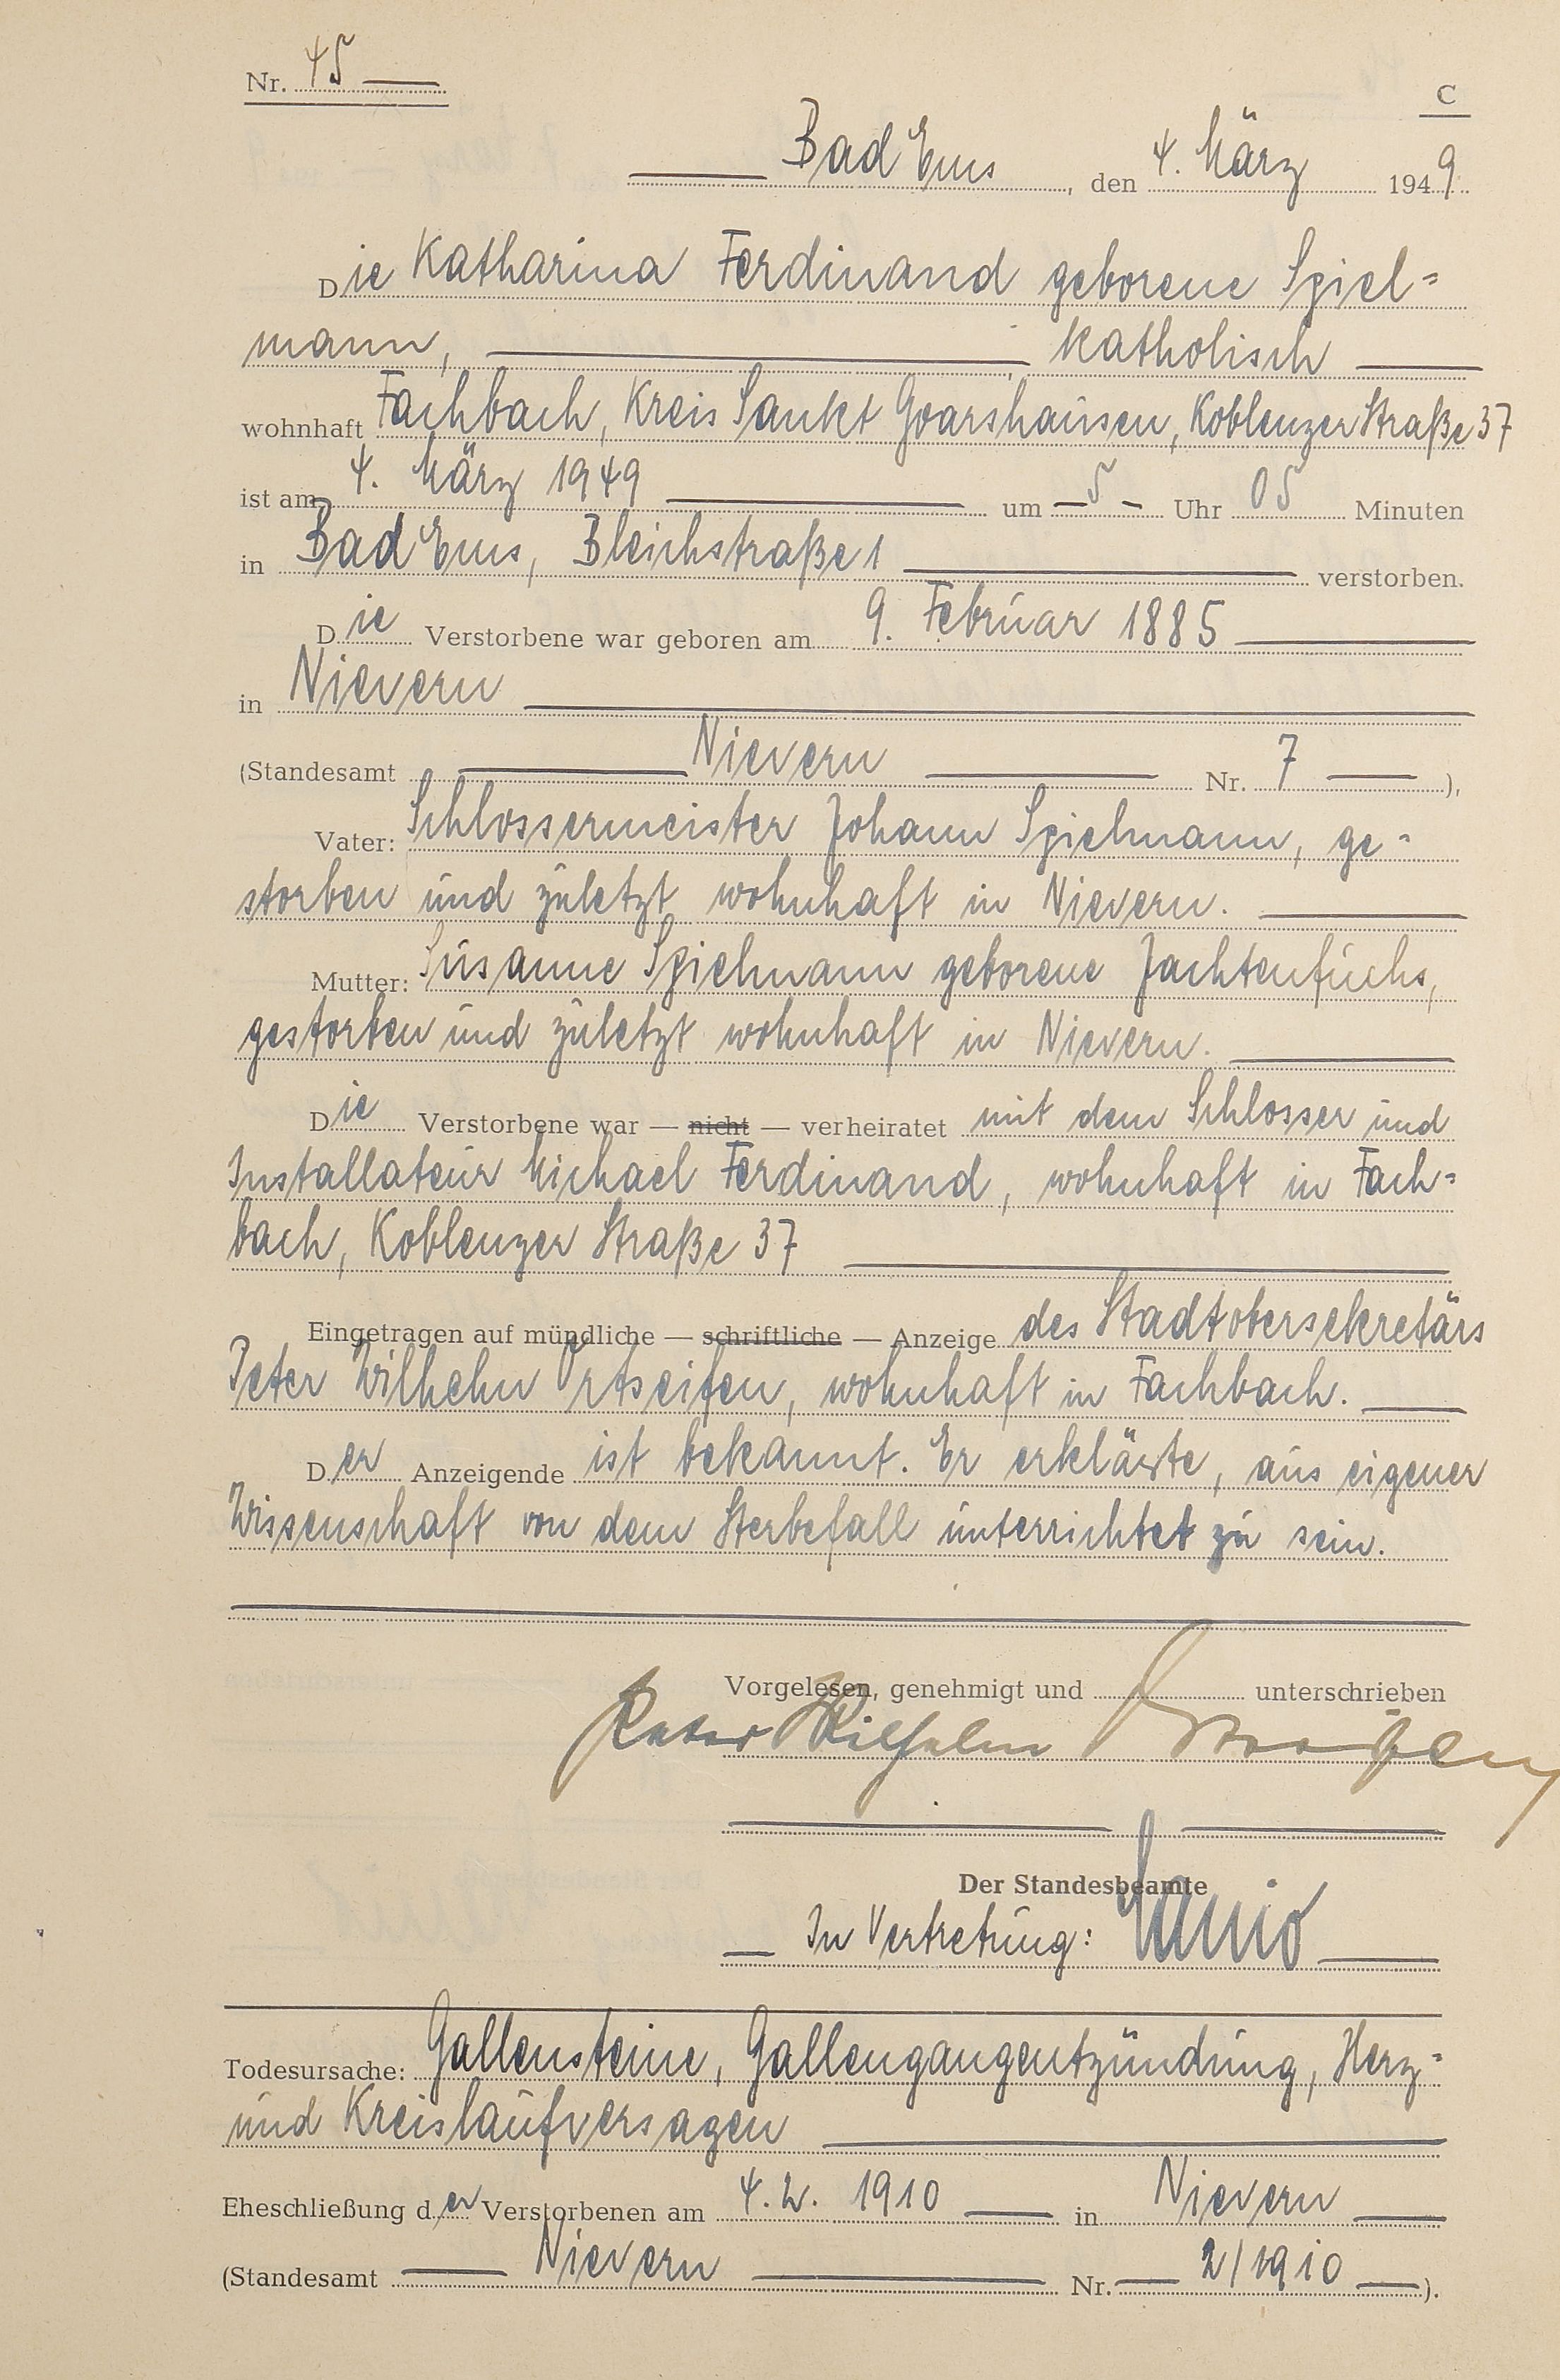 Nr. 45
C
Bad Ems, den 4. März 1949
Die Katharina Ferdinand geborene Spiel=
mann, katholisch
wohnhaft Fachbach, Kreis Sankt Goarshausen, Koblenzer Straße 37
ist am 4. März 1949 um 5 Uhr 05 Minuten
in Bad Ems, Bleichstraße 1 verstorben.
Die Verstorbene war geboren am 9. Februar 1885
in Nievern
(Standesamt Nievern Nr. 7 ),
Vater: Schlossermeister Johann Spielmann, ge=
storben und zuletzt wohnhaft in Nievern.
Mutter: Susanne Spielmann geborene Jachtenfuchs,
gestorben und zuletzt wohnhaft in Nievern.
Die Verstorbene war — nicht — verheiratet mit dem Schlosser und
Installateur Michael Ferdinand, wohnhaft in Fach=
bach, Koblenzer Straße 37
Eingetragen auf mündliche — schriftliche — Anzeige des Stadtobersekretärs
Peter Wilhelm Ortseifen, wohnhaft in Fachbach.
Der Anzeigende ist bekannt. Er erklärte, aus eigener
Wissenschaft von dem Sterbefall unterrichtet zu sein.
Vorgelesen, genehmigt und unterschrieben
Peter Wilhelm Ortseifen
Der Standesbeamte
In Vertretung:
Todesursache: Gallensteine, Gallengangentzündung, Herz=
und Kreislaufversagen
Eheschließung der Verstorbenen am 4. 2. 1910 in Nievern
(Standesamt Nievern Nr. 2/1910 ).